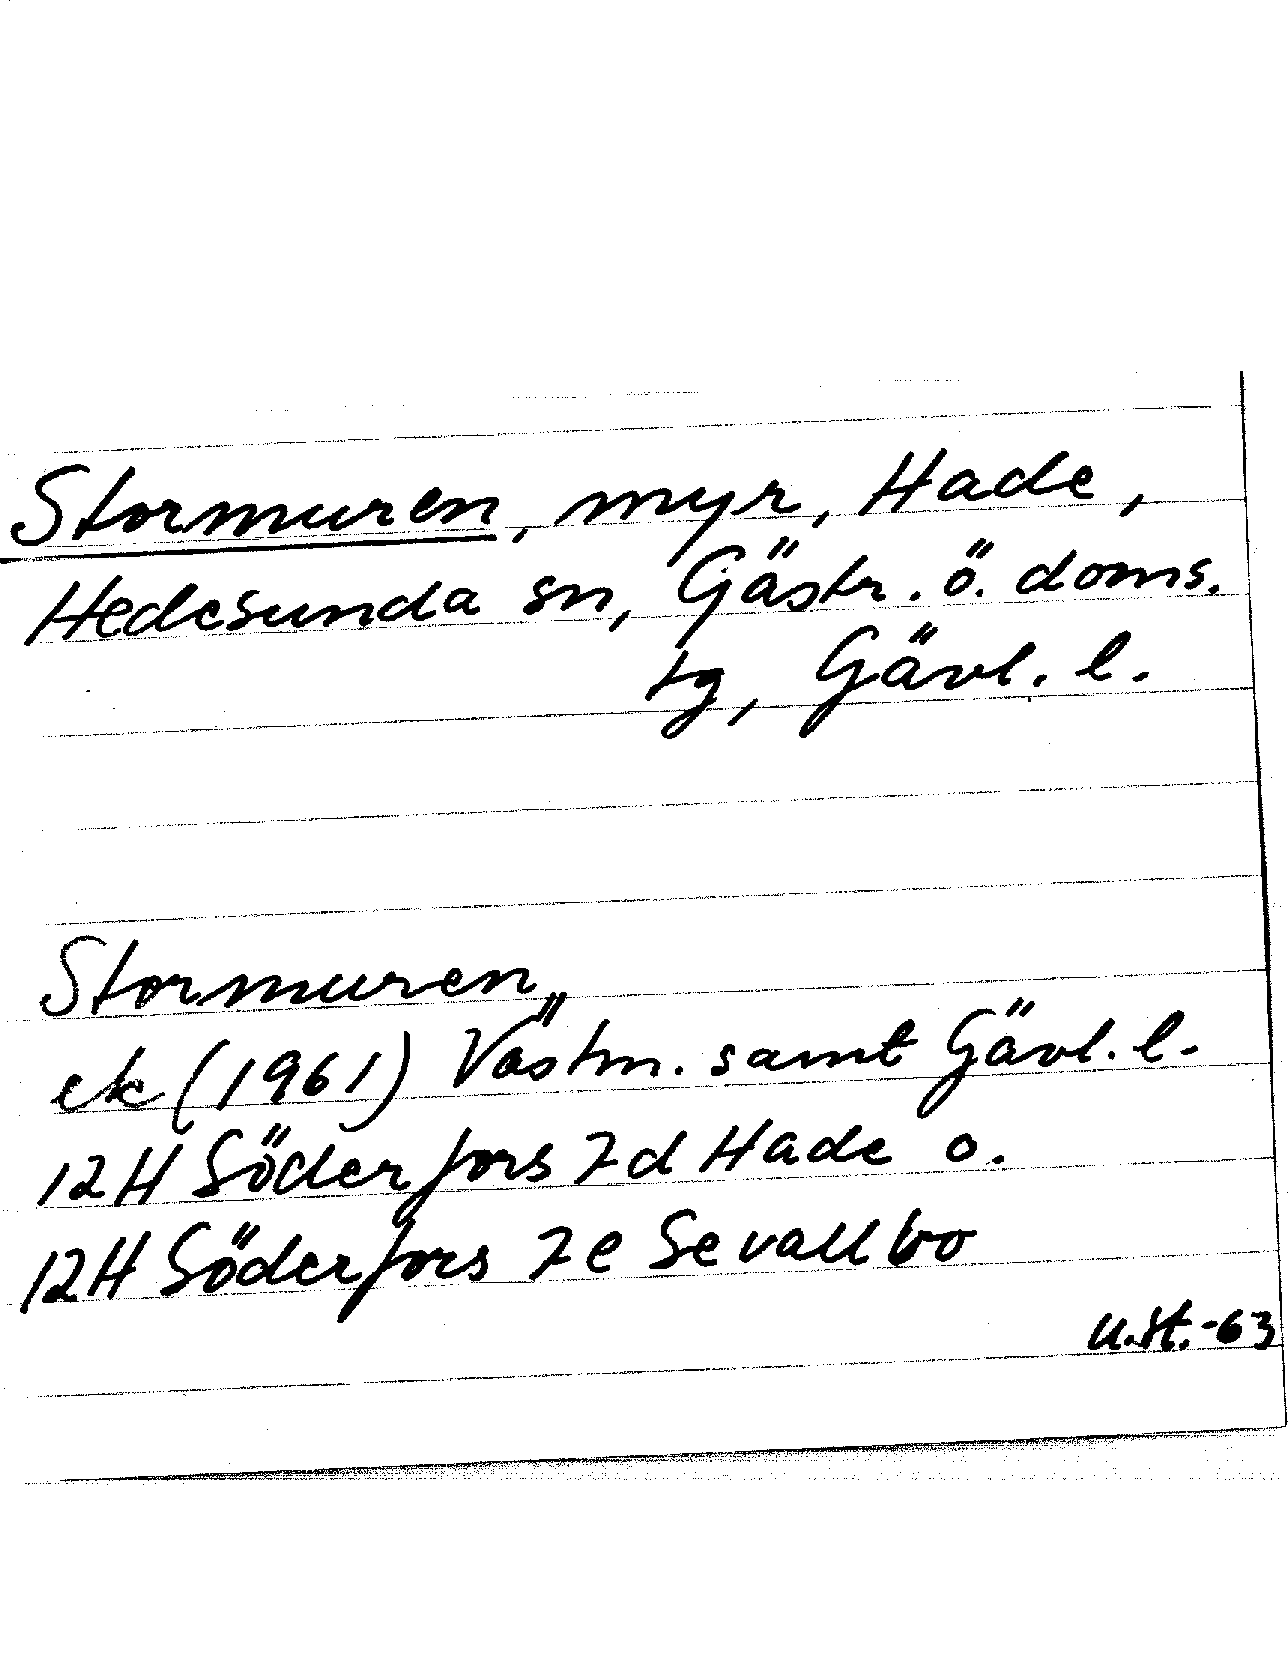 Stormuren, myr, Hade,
Hedesunda sn, Gästr. ö. doms.
tg, Gävl. l.
Stormuren
ek (1961) Västm. samt Gävl. l.
12H Söderfors 7d Hade o.
12H Söderfors 7e Sevallbo
U.St.-63